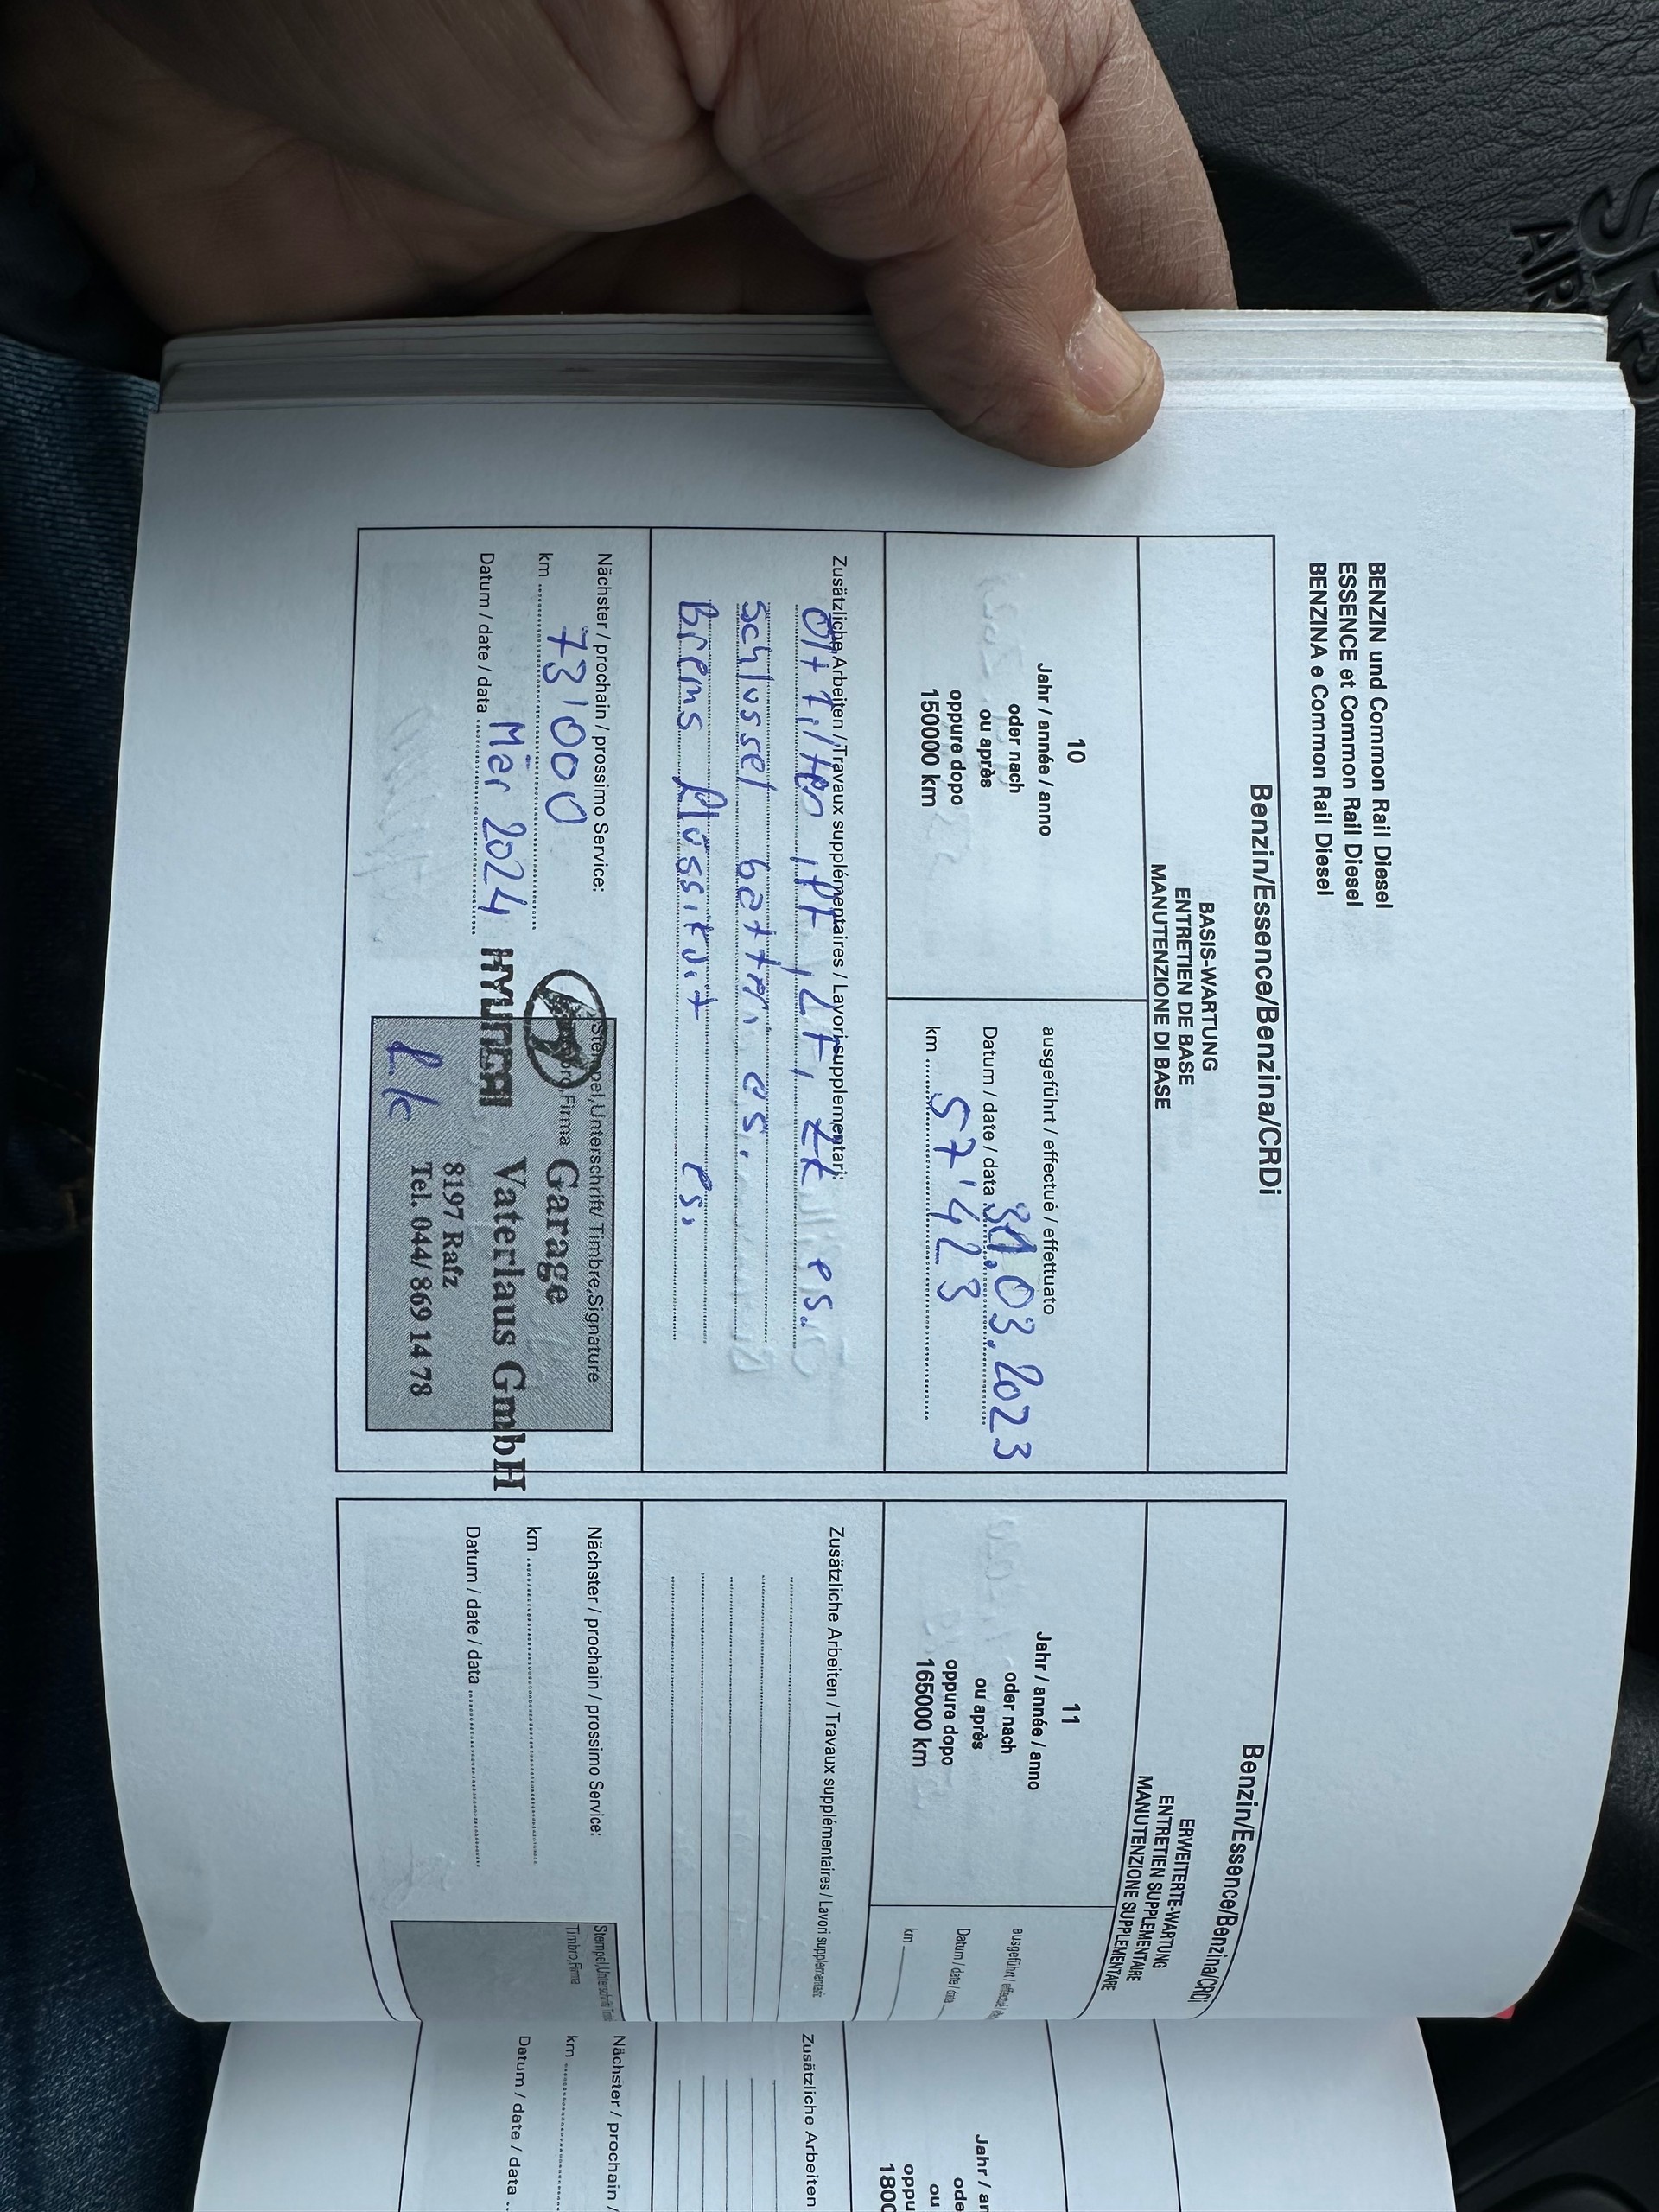 BENZIN und Common Rail Diesel
ESSENCE et Common Rail Diesel
BENZINA e Common Rail Diesel
Benzin/Essence/Benzina/CRDi
BASIS-WARTUNG
ENTRETIEN DE BASE
MANUTENZIONE DI BASE
10
Jahr / année / anno
oder nach
ou après
oppure dopo
150000 km
ausgeführt / effectué / effettuato
Datum / date / data 31.03.2023
km 57'423
Zusätzliche Arbeiten / Travaux supplémentaires / Lavori supplementari:
Öl + Filter, LF, ZK es.
Schlüssel batterie es.
Brems flüssikeit es.
Nächster / prochain / prossimo Service:
km 73'000
Datum / date / data Mär 2024
Stempel,Unterschrift/ Timbre,Signature
Firma
HYUNDAI
Garage
Vaterlaus GmbH
8197 Rafz
Tel. 044/ 869 14 78
Benzin/Essence/Benzina/CRDi
ERWEITERTE-WARTUNG
ENTRETIEN SUPPLEMENTAIRE
MANUTENZIONE SUPPLEMENTARE
11
Jahr / année / anno
oder nach
ou après
oppure dopo
165000 km
ausgeführt / effectué
Datum / date / data
km
Zusätzliche Arbeiten / Travaux supplémentaires / Lavori supplementari:
Nächster / prochain / prossimo Service:
km
Datum / date / data
Stempel,Unterschrift
Timbro,Firma
Jahr /
Zusätzliche Arbeiten
Nächster / prochain /
km
Datum / date / data
AIR